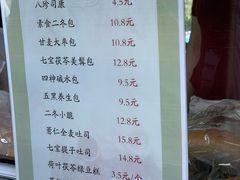 八珍司康 4.5元
素食二冬包 10.8元
甘麦大枣包 10.8元
七宝茯苓美髯包 12.8元
四神碱水包 9.5元
五黑养生包 9.5元
二冬小脆 12.8元
薏仁全麦吐司 15.8元
七宝提子吐司 14.8元
荷叶茯苓绿豆糕 3.5元/个